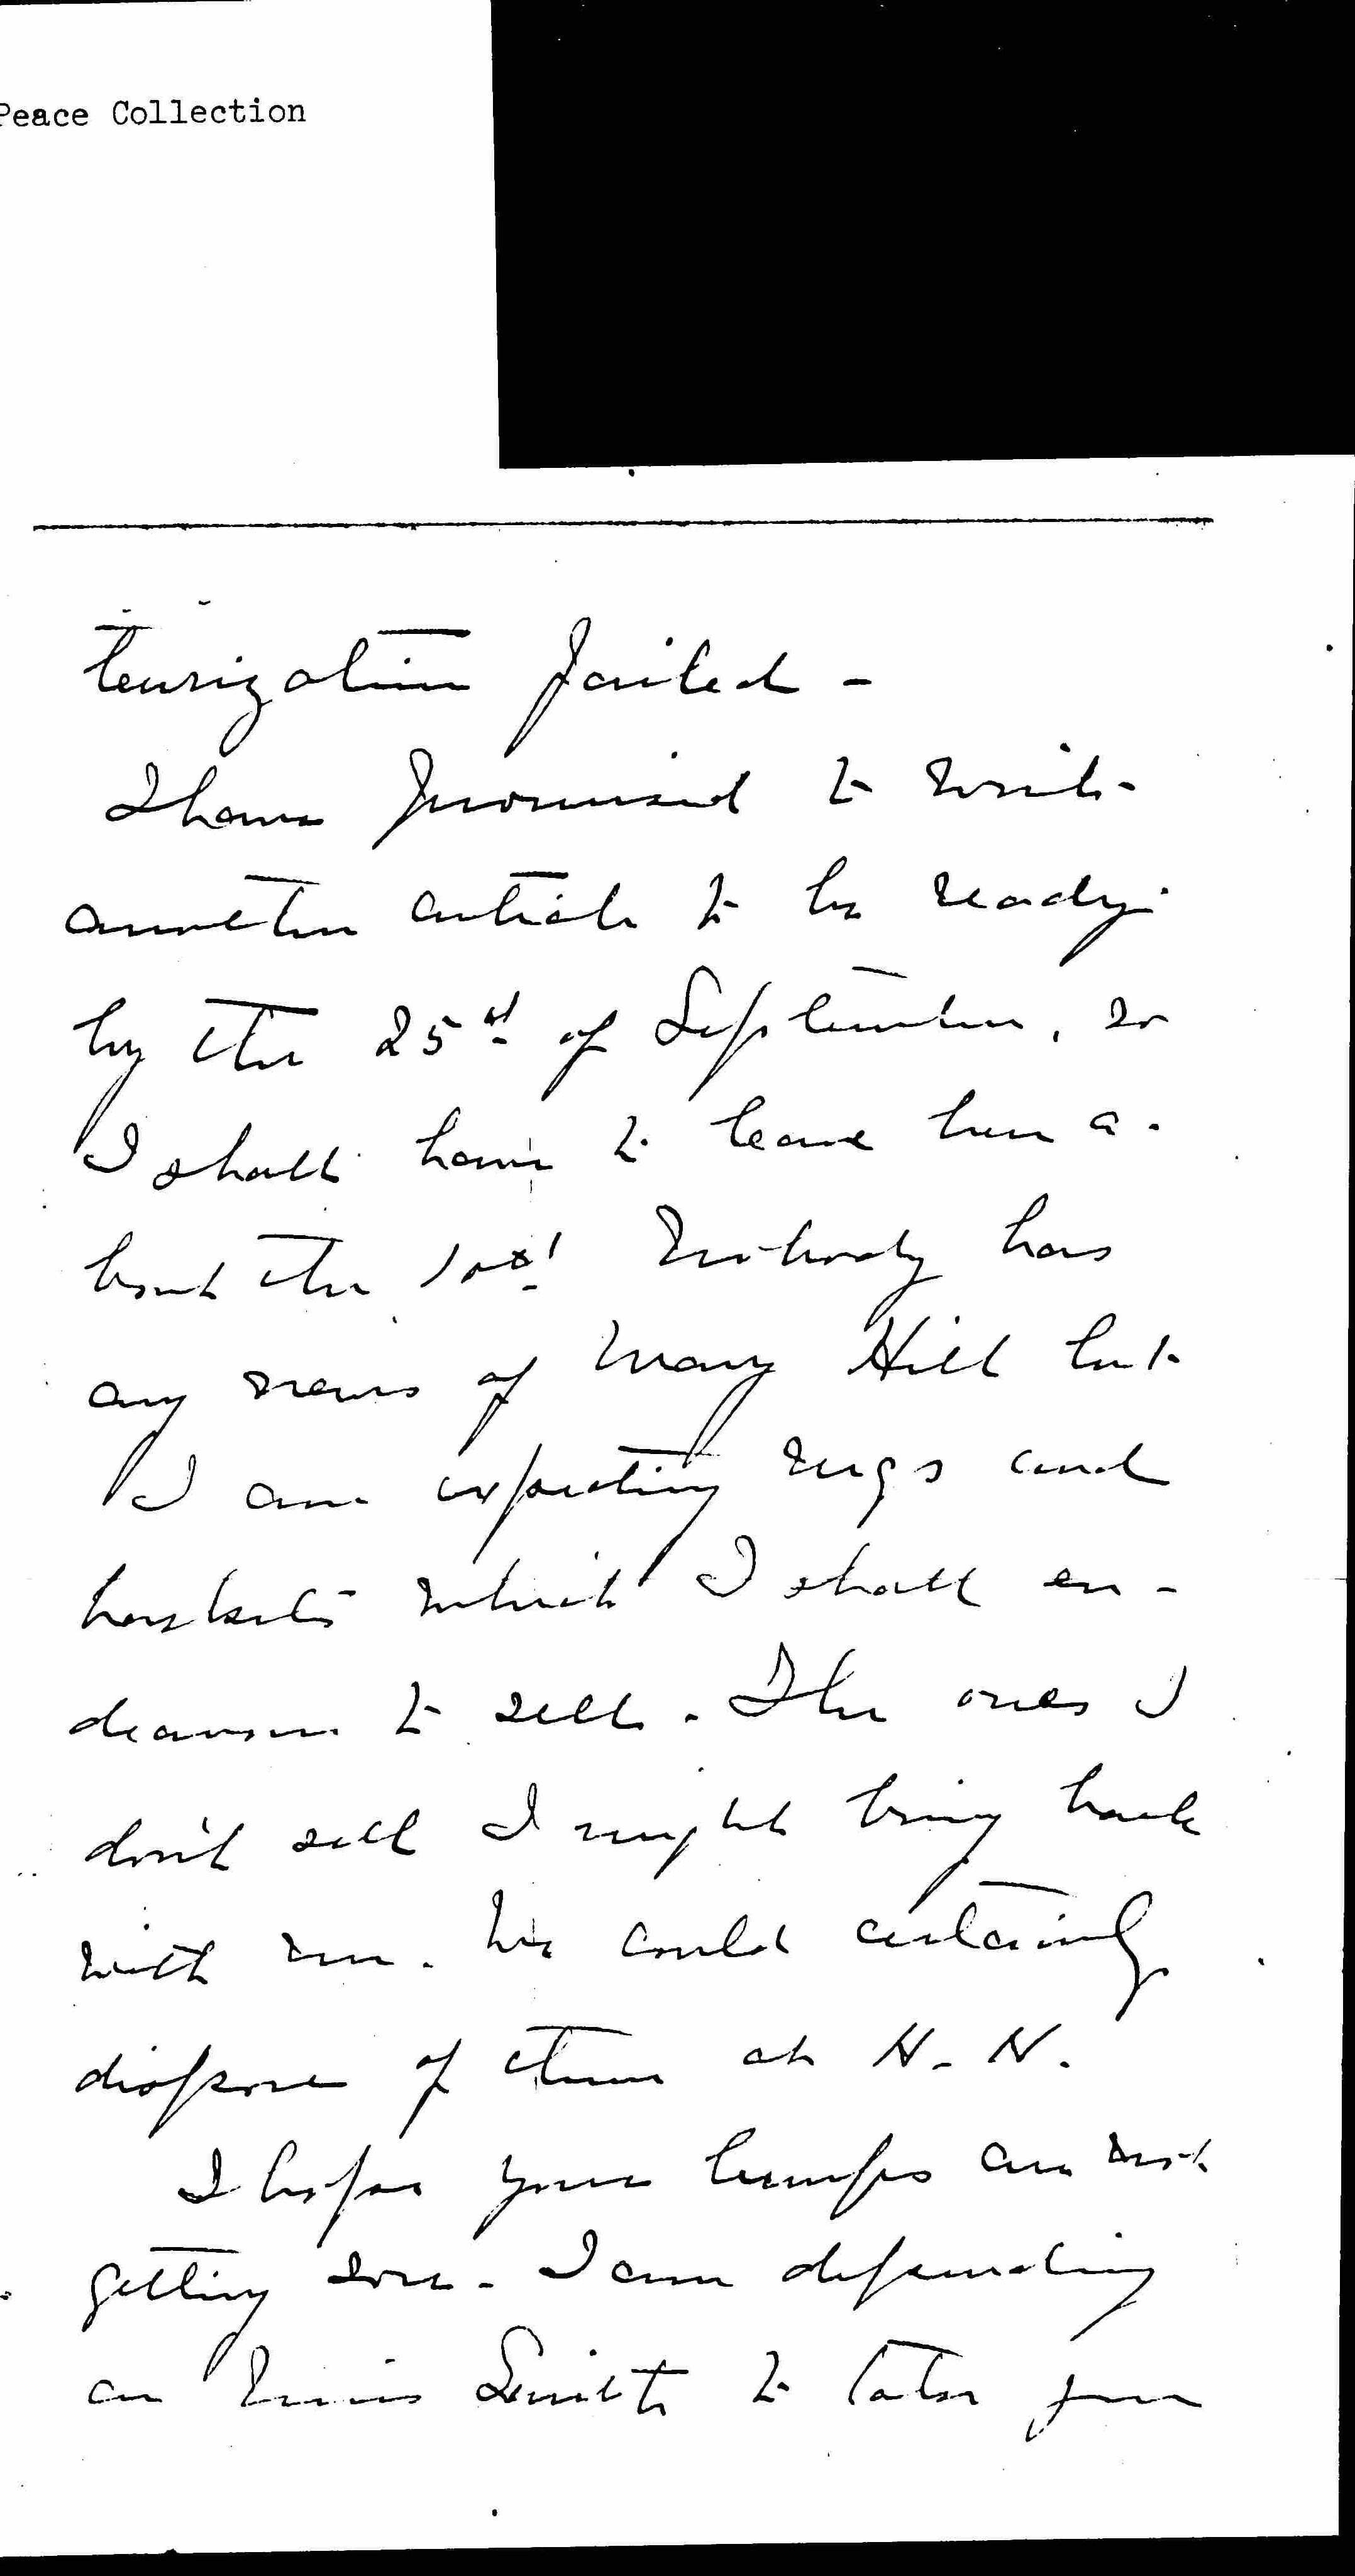 Peace Collection
teurization failed -
I have promised to write
another article to be ready
by the 25th of September, so
I shall have to leave here a-
bout the 10th! Nobody has
any news of Mary Hill but
I am expecting rugs and
baskets which I shall en-
deavour to sell. The ones I
don't sell I might bring back
with me. We could certainly
dispose of them at H. H.
I hope your lumps are not
getting sore - I am depending
on Miss Smith to take